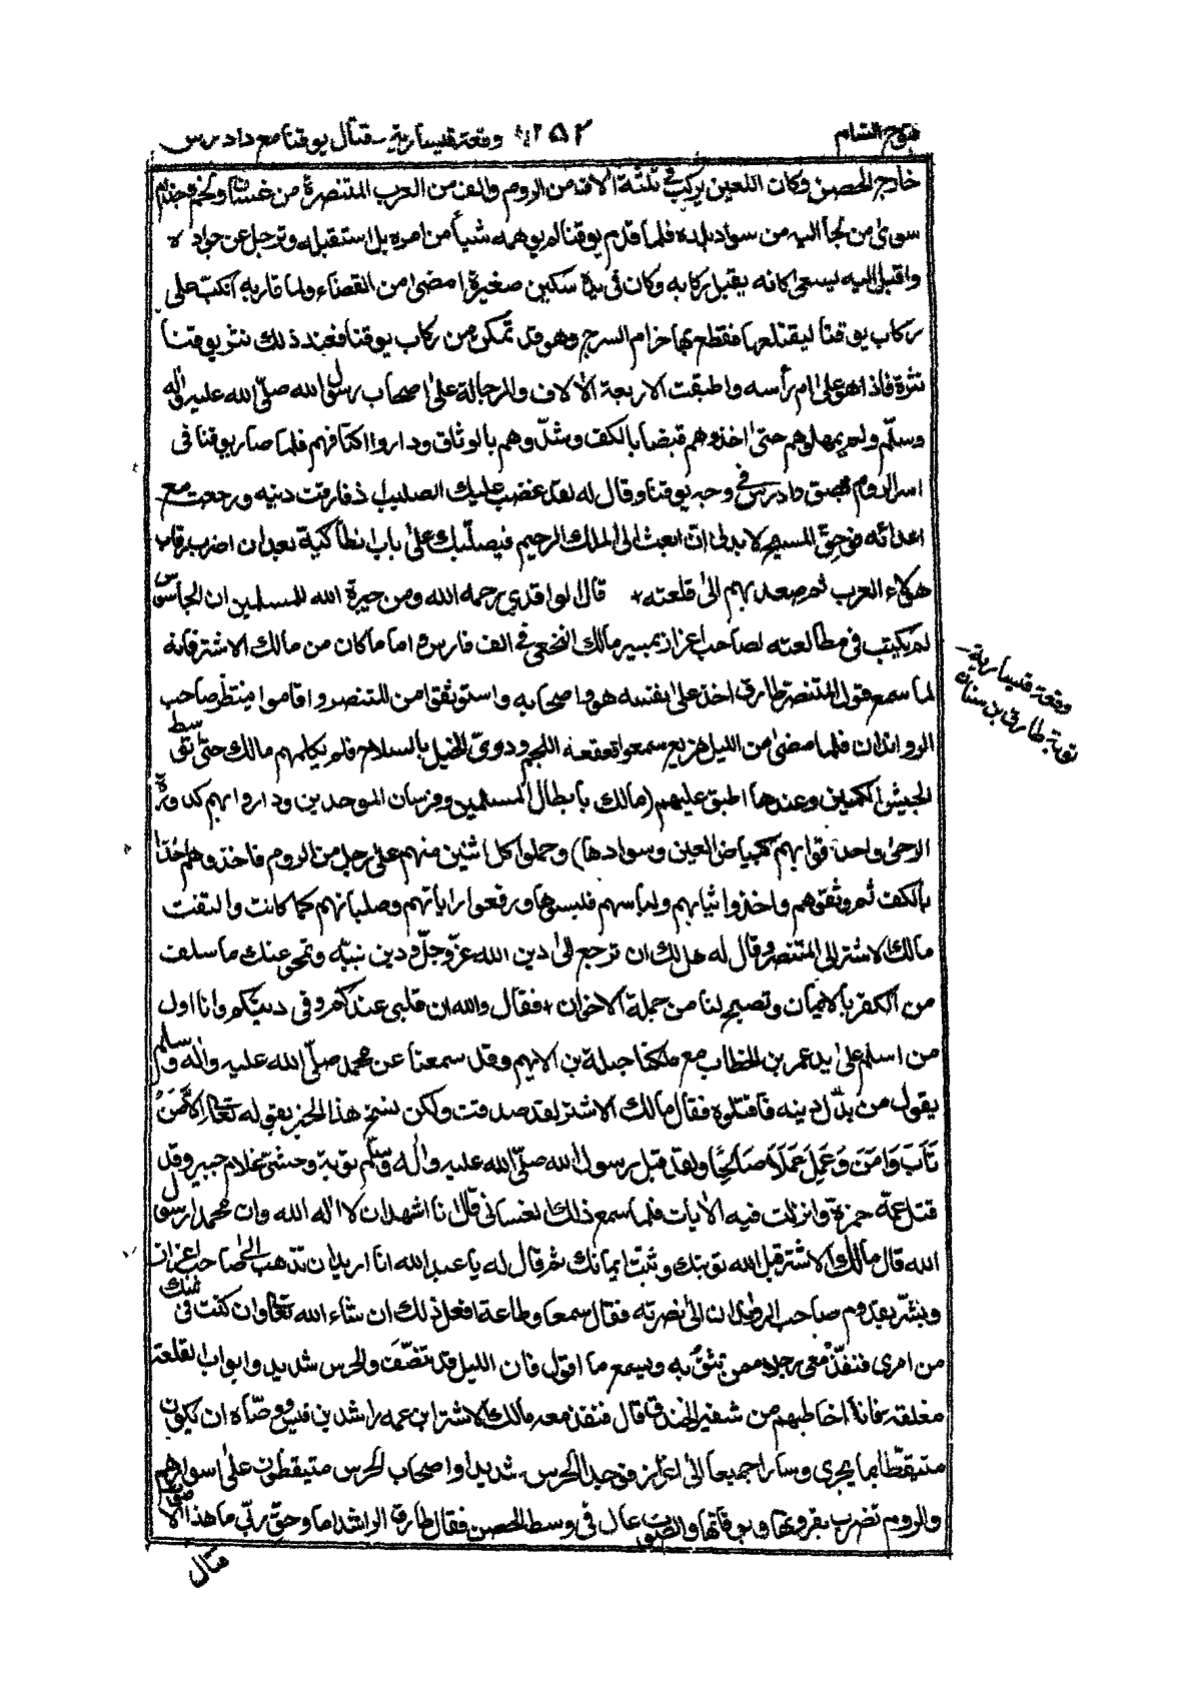 فتوح الشام ٢٥٢ وقعة قيسارية - قتال يوقنا مع دادرس
خارج الحصن وكان اللعين يركب في ثلثة آلاف من الروم والف من العرب المتنصرة من غسان ولخم وجذام
سوى من لجأ اليه من سواد بلده فلما قدم يوقنا لم يوهمه شيأ من امره بل استقبله وترجل عن جواده
واقبل اليه ليسعى كانه يقبل ركابه وكان في يده سكين صغيرة امضى من القضاء ولما قاربه انكب على
ركاب يوقنا ليقبله فقطع بها حزام السرج وهو قد تمكن من ركاب يوقنا فعند ذلك نثر يوقنا
نثرة فاذا هو على ام رأسه واطبقت الاربعة الآلاف والرجالة على اصحاب رسول الله صلى الله عليه واله
وسلّم ولم يمهلوهم حتى اخذوهم قبضا بالكف وشدّوهم بالوثاق وداروا اكتافهم فلما صار يوقنا فى
اسر الروم بصق دادرس في وجه يوقنا وقال له لقد غضب عليك الصليب اذ فارقت دينه ورجعت مع
اعدائه فوحقّ المسيح لا بد لى ان ابعث الى الملك الرحيم فيصلّبك على باب انطاكية بعد ان اضرب رقاب
هؤلاء العرب ثم صعد بهم الى قلعته * قال الواقدي رحمه الله ومن خيرة الله للمسلمين ان الجاسوس
لم يكتب في مطالعته لصاحب اعزاز بمسير مالك النخعي في الف فارس اما ما كان من مالك الاشتر فانه
لما سمع قول المتنصر طارق اخذ على نفسه هو واصحابه واستوثقوا من المتنصر واقاموا منتظر صاحب
الراوندان فلما مضى من الليل هزيع سمعوا قعقعة اللجم ودوىّ الخيل بالسلاح فلم يكلمهم مالك حتى توسط
الجيش الكمين وعندها اطبق عليهم (مالك بابطال المسلمين وفرسان الموحدين وداروا بهم كدورة
الرحى واحدقوا بهم كبياض العين وسوادها) وحملوا كل اثنين منهم على رجل من الروم فاخذوهم اخذا
بالكف ثم وثقوهم واخذوا ثيابهم ولباسهم فلبسوها ورفعوا راياتهم وصلبانهم كما كانت والتفت
مالك الاشتر الى المتنصر وقال له هل لك ان ترجع الى دين الله عزّ وجلّ ودين نبيّه وتمحى عنك ما سلف
من الكفر بالايمان وتصبح لنا من جملة الاخوان * فقال والله ان قلبى عندكم وفى دينكم وانا اول
من اسلم على يد عمر بن الخطاب مع ملكنا جبلة بن الايهم وقد سمعنا عن محمد صلّى الله عليه واله وسلم
يقول من بدّل دينه فاقتلوه فقال مالك الاشتر لقد صدقت ولكن نسخ هذا الخبر بقوله تعالى الا مَنْ
تَابَ وَامَنَ وَعَمِلَ عَمَلًا صَالِحًا ولقد قبل رسول الله صلّى الله عليه واله وسلّم توبة وحشي غلام جبير وقد
قتل عمّه حمزة وانزلت فيه الآيات فلما سمع ذلك الغسانى قال انا اشهد ان لا اله الا الله وان محمدا رسول
الله قال مالك الاشتر قبل الله توبتك وثبت ايمانك ثم قال له يا عبد الله انا اريد ان تذهب الى صاحب اعزاز
وبشّره بقدوم صاحب الراوندان الى نصرته فقال سمعا وطاعة افعل ذلك ان شاء الله تعالى وان كنت فى شك
من امرى فنفّذ معى رجلا ممن تثق به ويسمع ما اقول فان الليل قد تنصّف والحرس شديد وابواب القلعة
مغلقة فانا اخاطبهم من شفير الخندق قال فنفذ معه مالك الاشتر ابن عمه راشد بن قيس ووصّاه ان يكون
متيقظا بما يجرى وسارا جميعا الى اعزاز فوجدا الحرس شديدا واصحاب الحرس متيقظون على اسوارهم
والروم تضرب بقرونها وبوقاتها والصوت عال في وسط الحصن فقال طارق الراشد اما وحق ربّي ما هذا الا صوت
قتال
وقعة قيسارية -
توبة طارق بن سنان